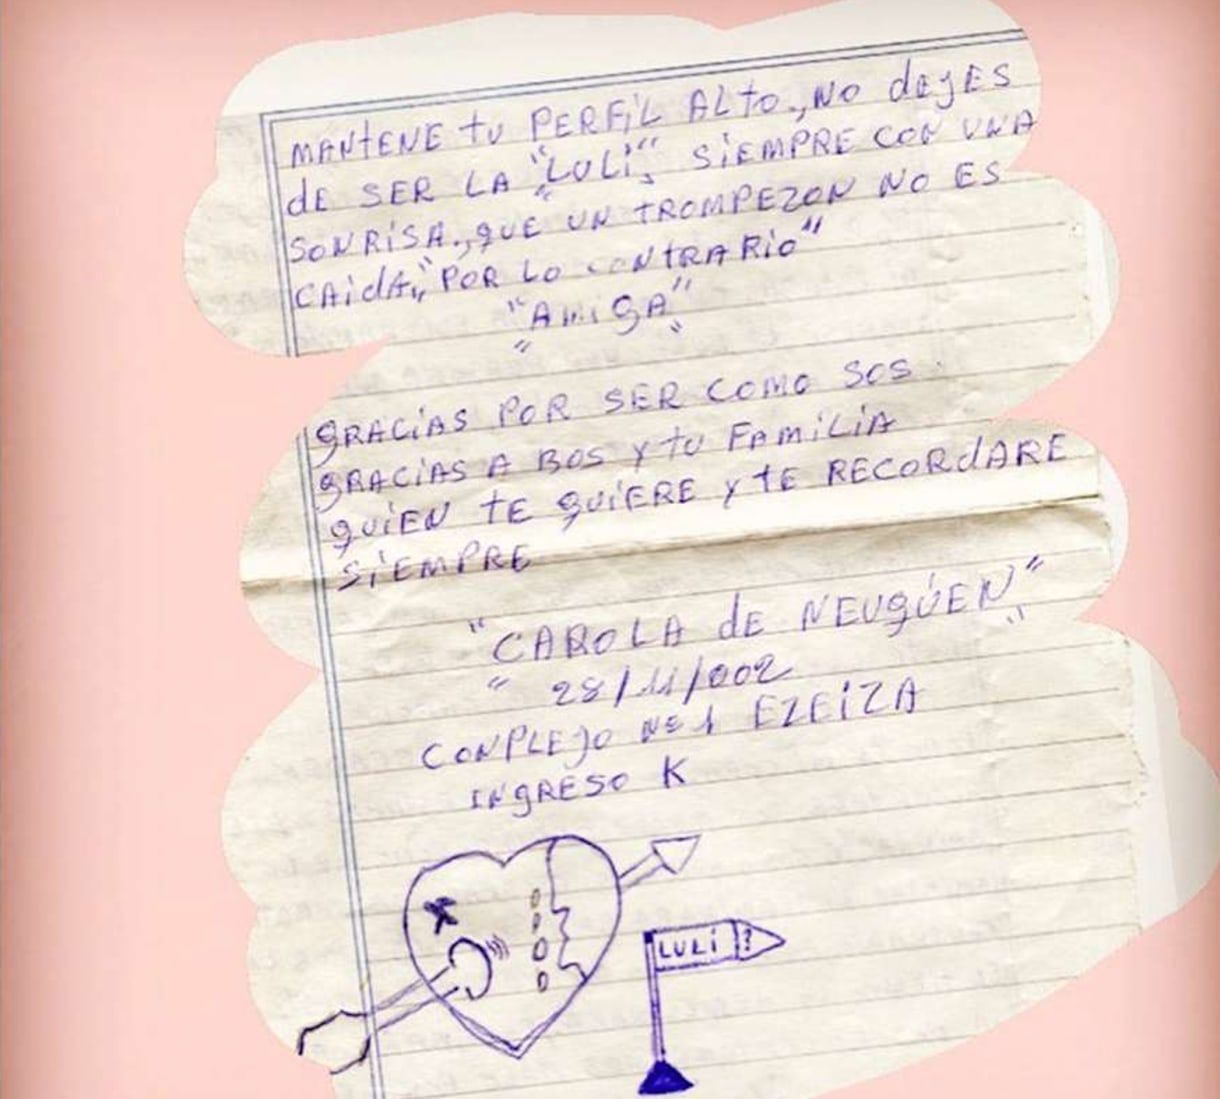 MANTENE tU PERFIL ALtO., NO dEJES
dE SER LA "LULI", SIEMPRE CON UNA
SONRISA., QUE UN tROMPEZON NO ES
CAIdA., "POR LO CONtRARIO"
"AMIGA"
GRACIAS POR SER COMO SOS.
GRACIAS A BOS Y tU FAMILIA
QUIEN tE QUIERE Y tE RECORdARE
SIEMPRE
"CAROLA dE NEUQÚEN"
28/11/002
CONPLEJO Nº 1 EZEIZA
INGRESO K
LULI ?